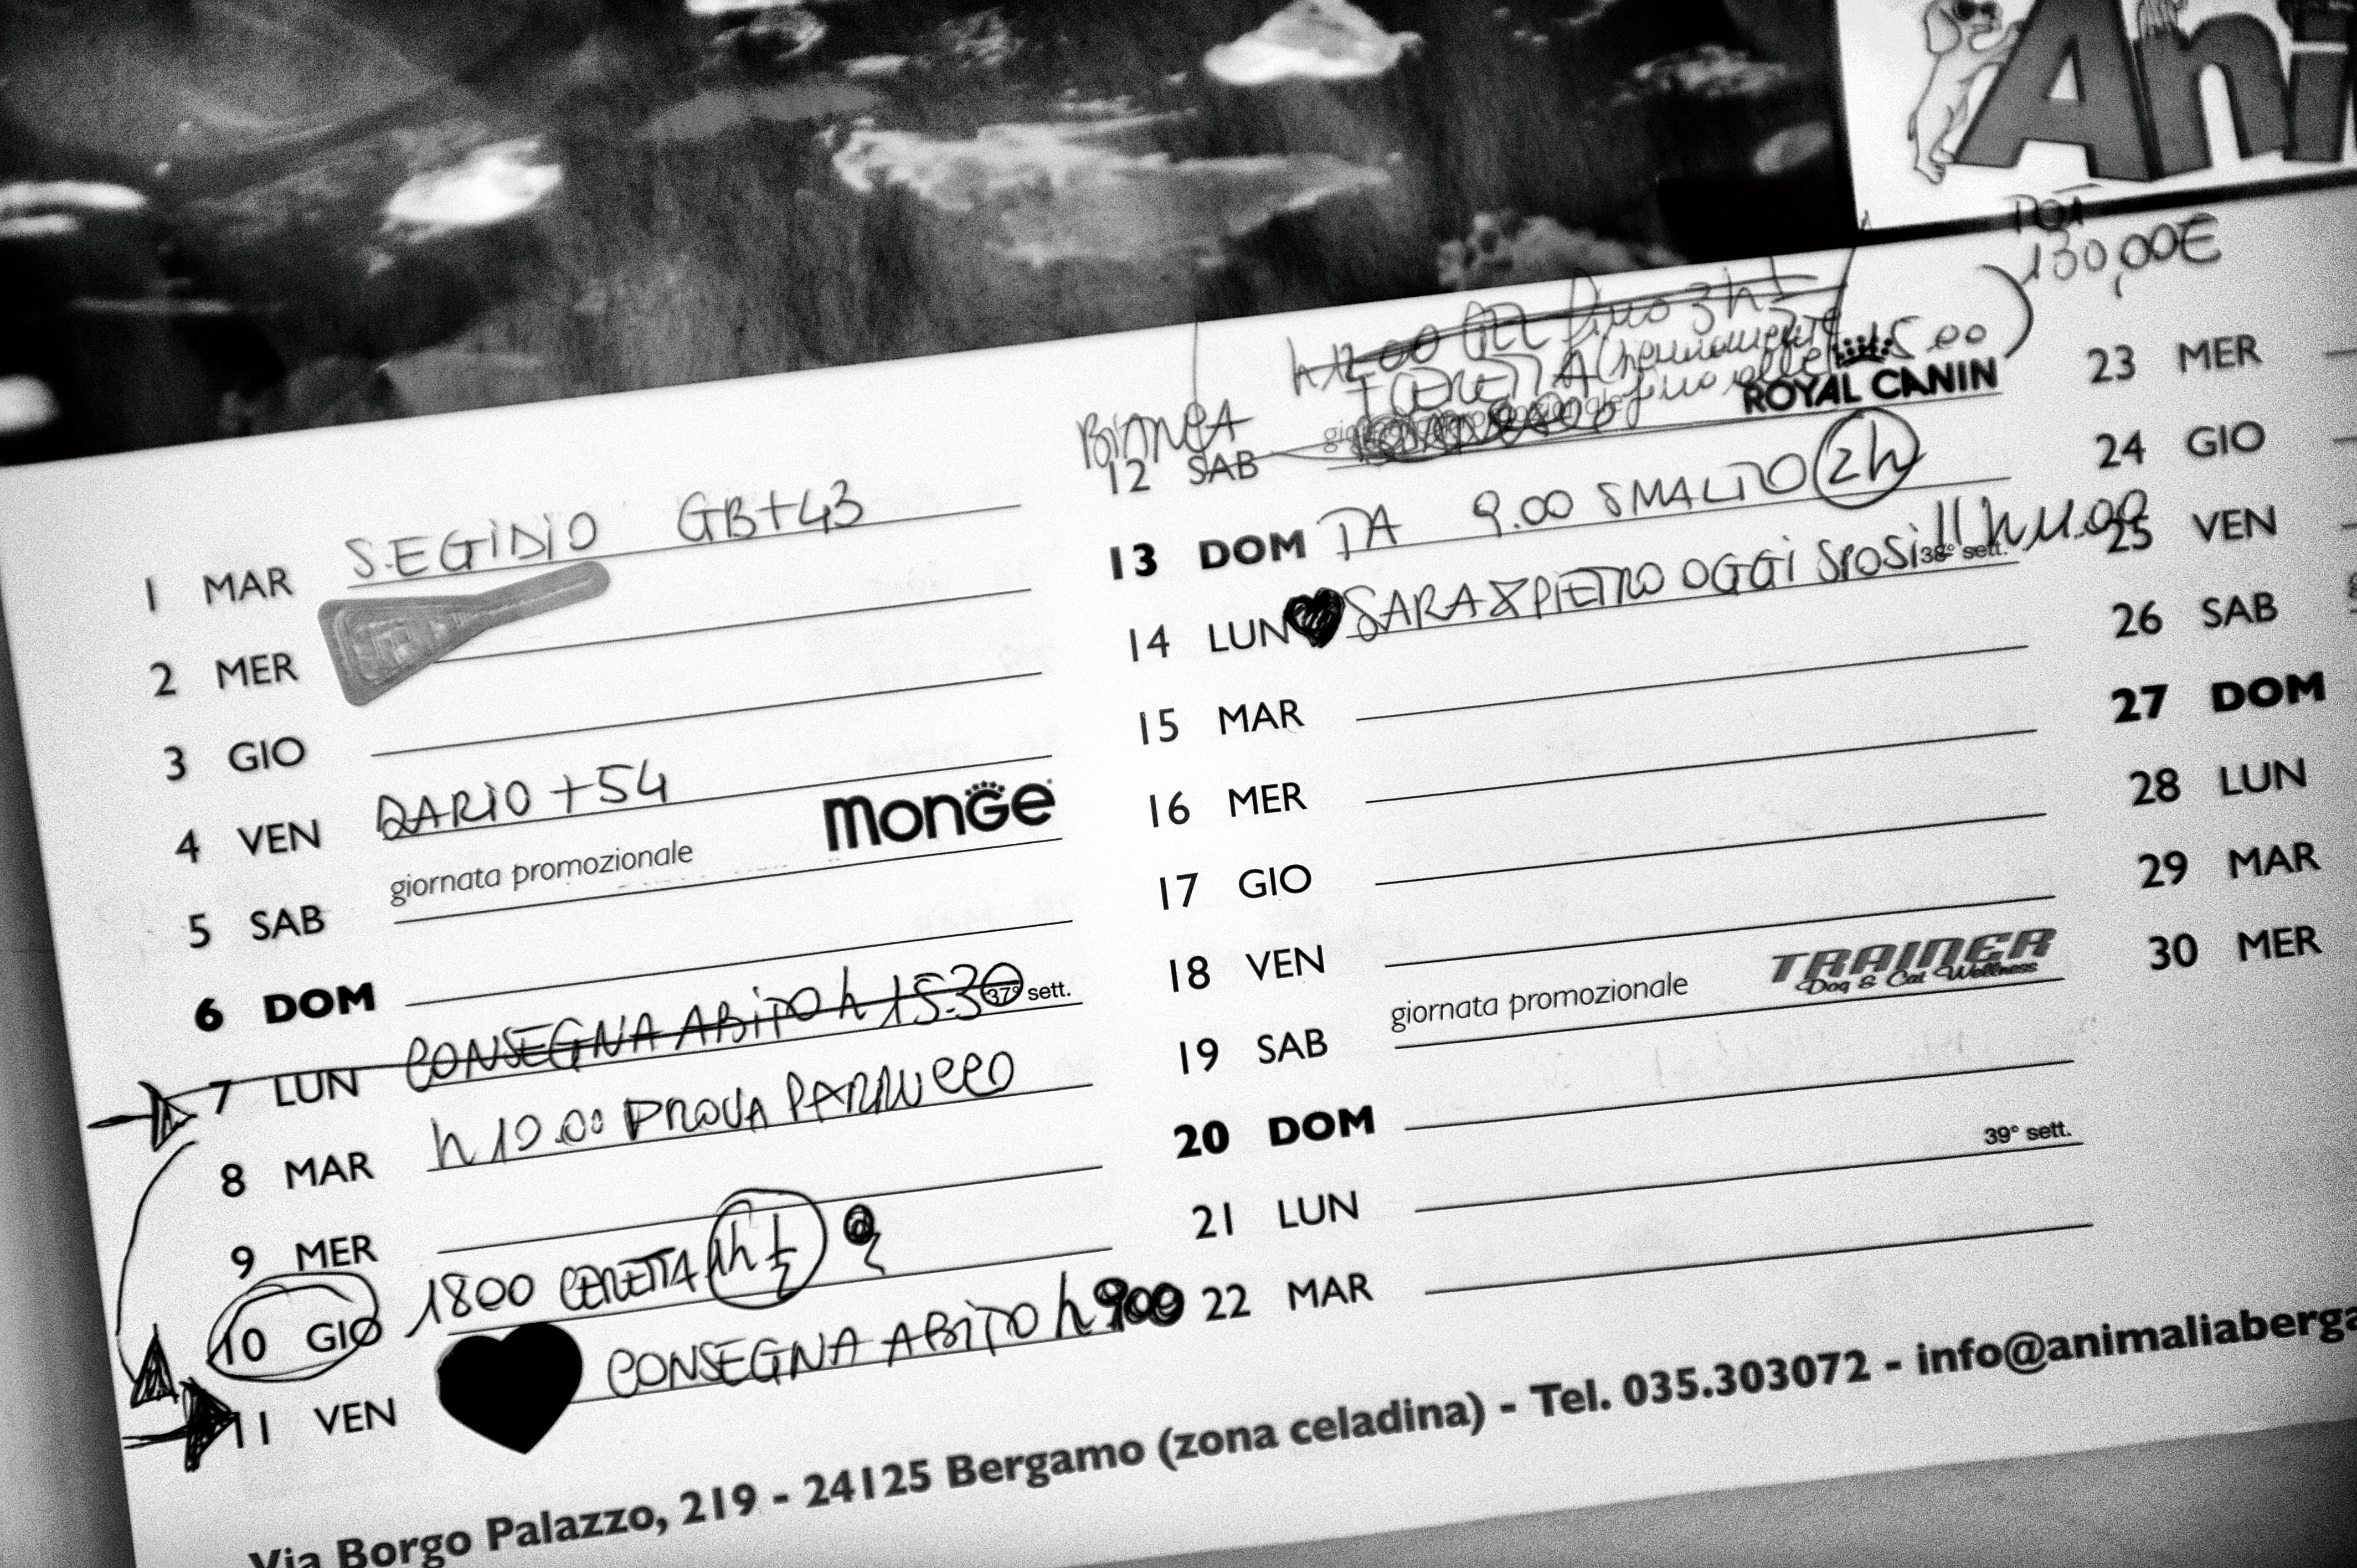 Ani
TOT
130,00€
1 MAR S.EGIDIO GB+43
2 MER
3 GIO
4 VEN DARIO +54
giornata promozionale monge
5 SAB
6 DOM
37° sett.
7 LUN CONSEGNA ABITO h 15.30
8 MAR h 10.00 PROVA PARRUCCO
9 MER
10 GIO 1800 CERETTA 1h ½
11 VEN CONSEGNA ABITO h 900
h 12.00
CERETTA
fino alle 15.00
BIANCA
ROYAL CANIN
12 SAB
13 DOM DA 9.00 SMALTO 2h
38° sett.
14 LUN SARA & PIETRO OGGI SPOSI!! h 11.00
15 MAR
16 MER
17 GIO
18 VEN
giornata promozionale TRAINER
Dog & Cat Wellness
19 SAB
20 DOM
39° sett.
21 LUN
22 MAR
23 MER
24 GIO
25 VEN
26 SAB
27 DOM
28 LUN
29 MAR
30 MER
Via Borgo Palazzo, 219 - 24125 Bergamo (zona celadina) - Tel. 035.303072 - info@animaliaberga